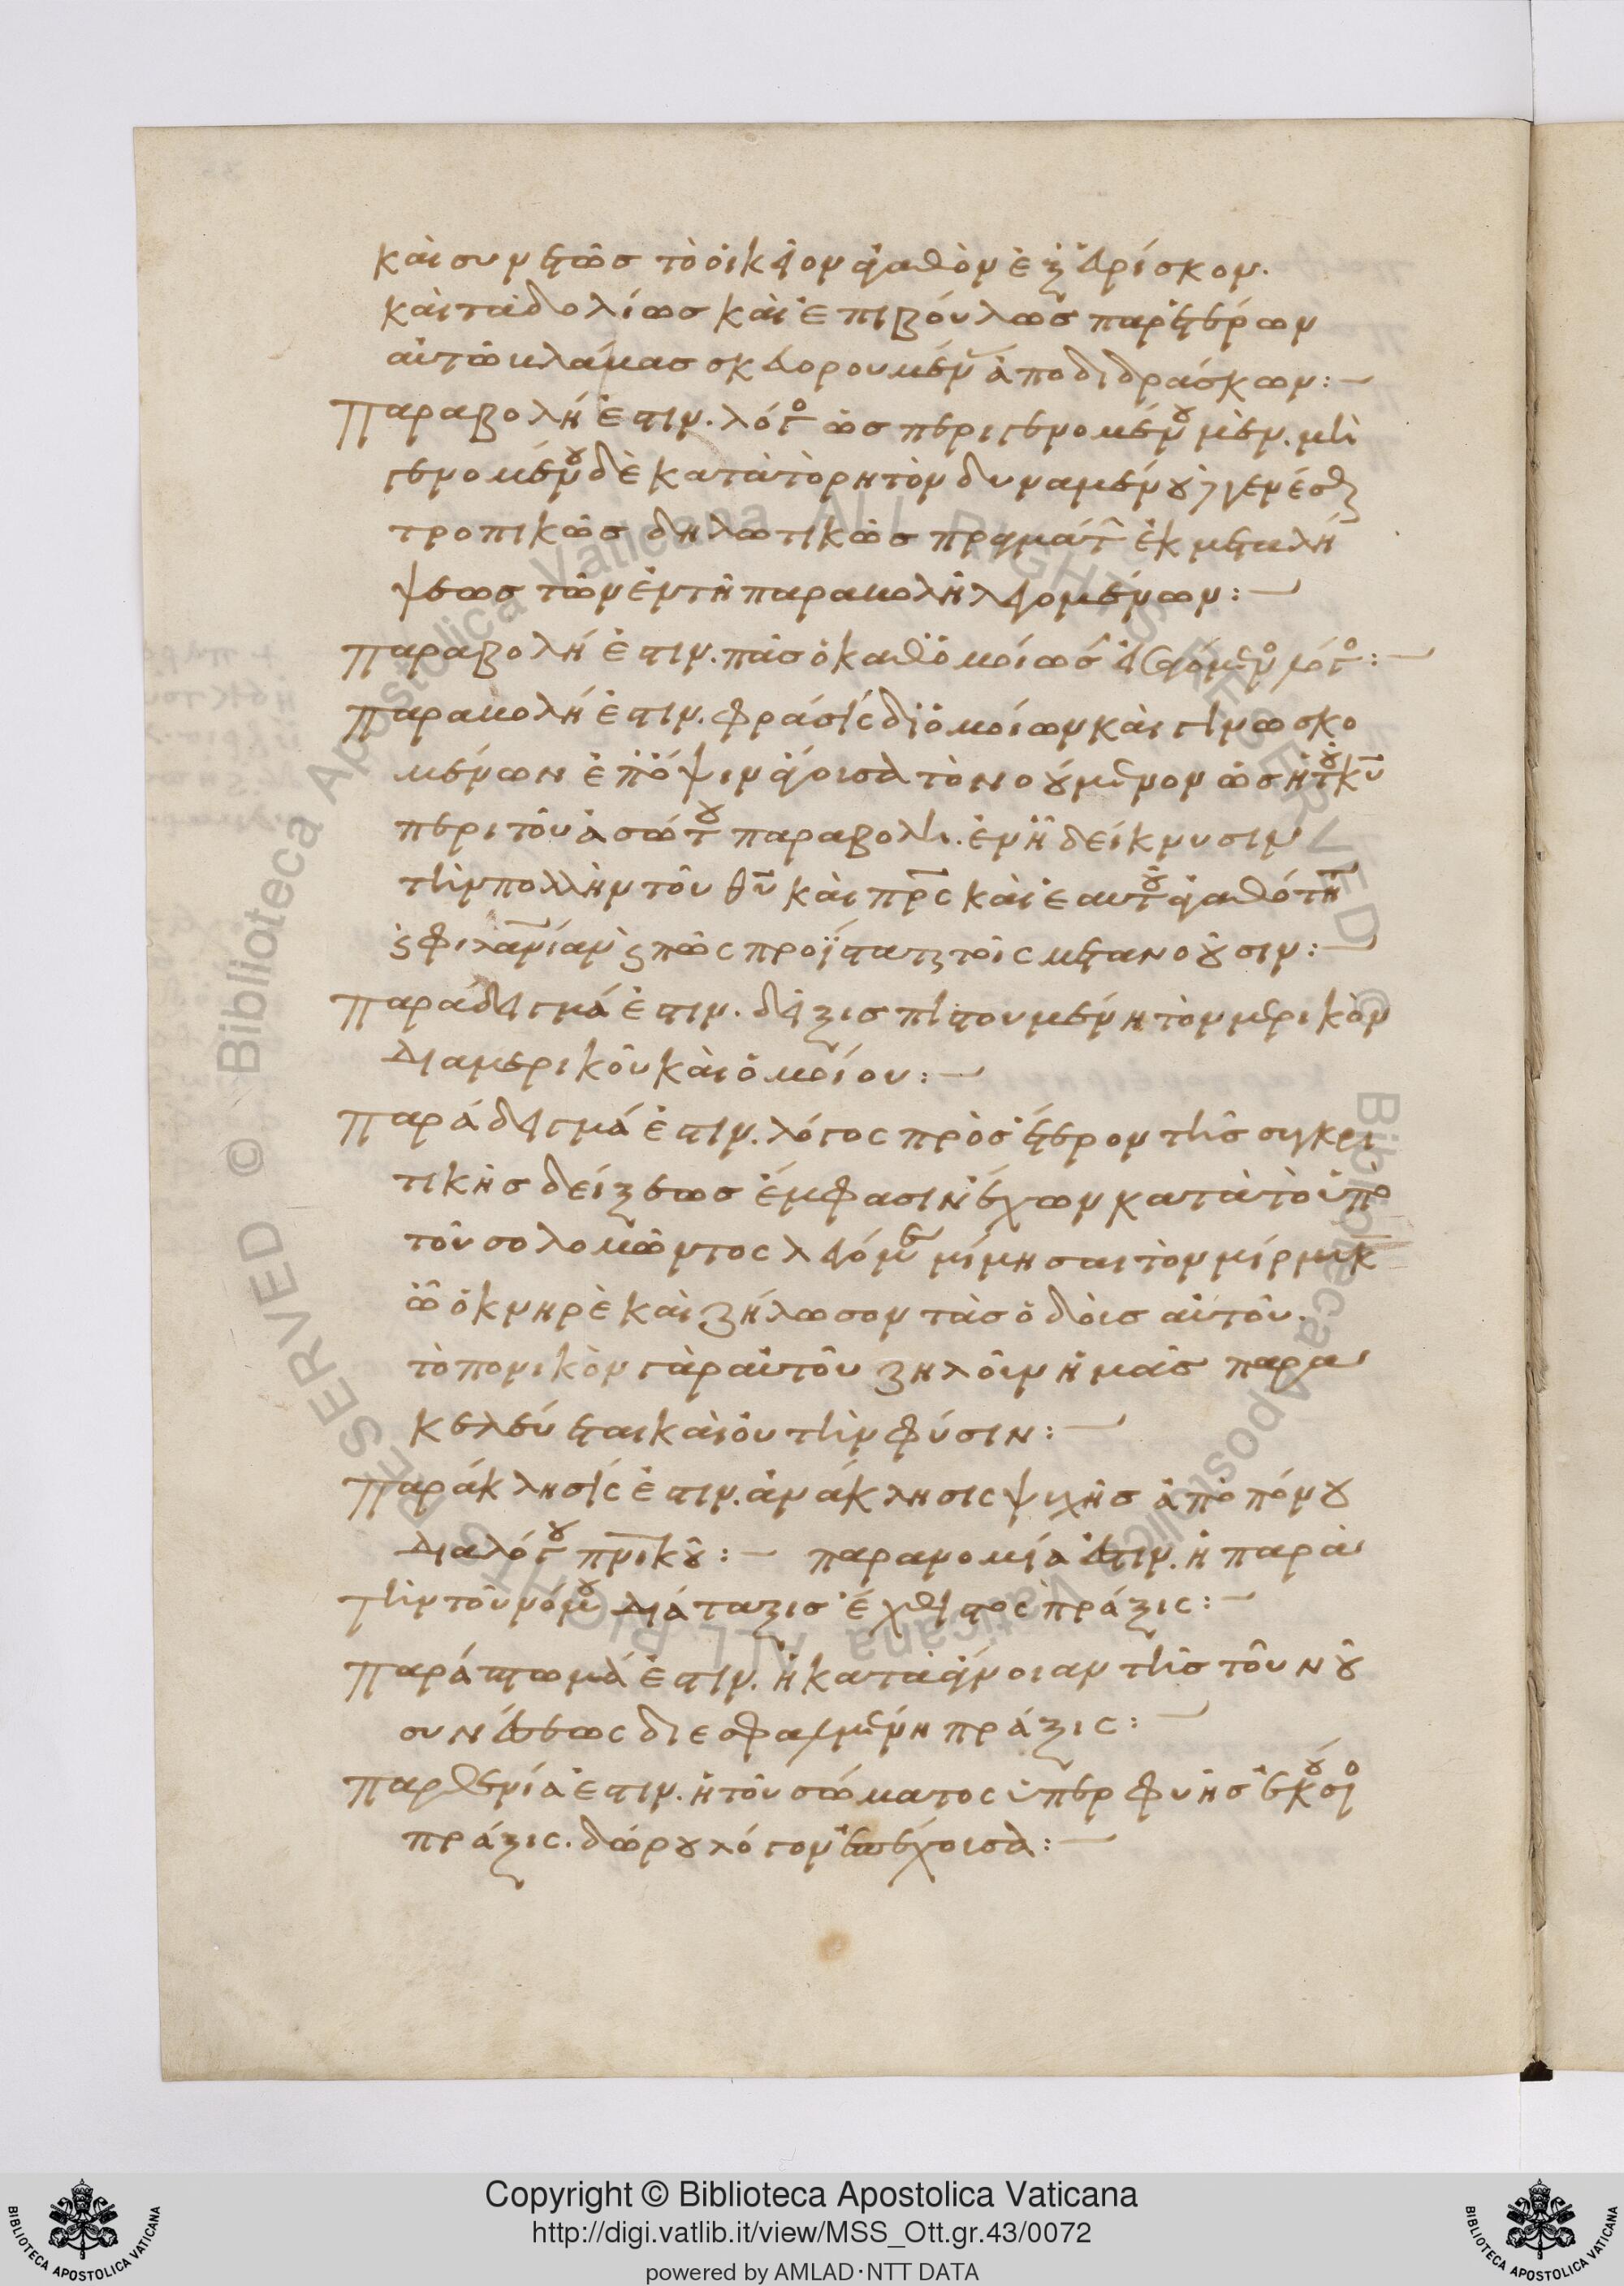 καὶ συνετῶς τὸ οἰκεῖον ἀγαθὸν ἐξευρίσκον.
καὶ τὰ δολίως καὶ ἐπιβούλως παρ' ἑτέρων
αὐτῶ
ἀποδιδράσκων:—
Παραβολή ἐστιν. λόγος ὡς περὶ γενομένου μὲν. μὴ
γενομένου δὲ κατὰ τὸ ρητὸν δυναμένου γενέσθαι
τροπικῶς δηλωτικὸς πραγμάτων ἐκ μεταλή
ψεως τῶν ἐν τῆ παραβολῆ λεγομένων:—
Παραβολή ἐστιν. πᾶς ὁ καθ' ὁμοίωσιν εἰσαγόμενος λόγος:—
Παραβολή ἐστιν. φράσις δι' ὁμοίων καὶ γινωσκο
μένων ἐπ' ὄψιν ἄγουσα τὸ νοούμενον ὡς ἡ τοῦ κυ
περὶ τοῦ ἀσώτου παραβολή. ἐν ἧ δείκνυσιν
τὴν πολλὴν τοῦ θυ καὶ πρς καὶ ἑαυτοῦ ἀγαθότητα
καὶ φιλανίαν καὶ πῶς προΐσταται τοῖς μετανοοῦσιν:—
Παράδειγμά ἐστιν. δεῖξις πιστουμένη τὸν μερικὸν
διὰ μερικοῦ καὶ ὁμοίου:—
Παράδειγμά ἐστιν. λόγος πρὸς ἕτερον τῆς συγκρι
τικῆς δείξεως ἔμφασιν ἔχων κατὰ τὸ ὑπὸ
τοῦ σολομῶντος λεγόμενον μίμησαι τὸν μύρμηκα
ὦ ὀκνηρὲ καὶ ζήλωσον τὰς ὁδοὺς αὐτοῦ.
τὸ πονικὸν γὰρ αὐτοῦ ζηλοῦν ἡμᾶς παρα
κελεύεται καὶ οὐ τὴν φύσιν:—
Παράκλησίς ἐστιν. ἀνάκλησις ψυχῆς ἀπὸ πόνου
διὰ λόγου πνικοῦ:— παρανομία ἐστιν. ἡ παρὰ
τὴν τοῦ νόμου διάταξις ἔχθιστος πρᾶξις:—
Παράπτωμά ἐστιν. ἡ κατὰ ἄγνοιαν τῆς τοῦ νοῦ
συνέσεως διεσφαλμένη πρᾶξις:—
Παρθενία ἐστιν. ἡ τοῦ σώματος ὑπερφυὴς ἑκούσιος
πρᾶξις. δώρου λόγον ἐπέχουσα:—
Copyright © Biblioteca Apostolica Vaticana
http://digi.vatlib.it/view/MSS_Ott.gr.43/0072
powered by AMLAD·NTT DATA